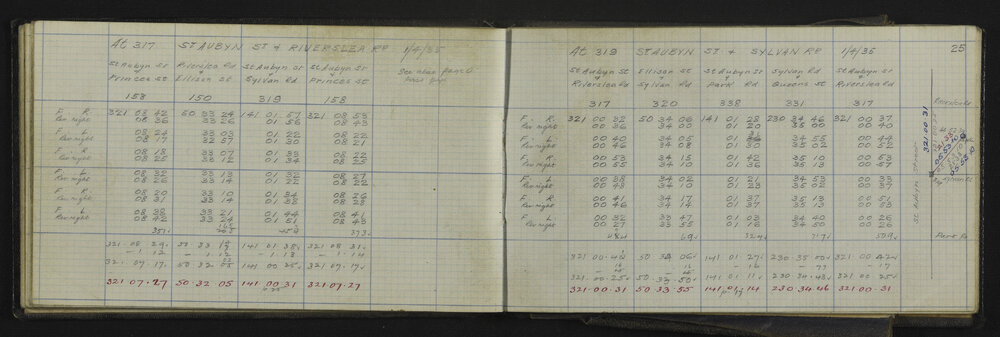 At 317 ST AUBYN ST & RIVERSLEA RD 1/4/35
St Aubyn St Riverslea Rd St Aubyn St St Aubyn St
& & & &
Princes St Ellison St Sylvan Rd Princes St
158 150 319 158
F. R. 321 03 42 50 33 24 141 01 57 321 08 53
Per right 08 36 33 26 01 56 08 43
F L 08 24 33 03 01 22 08 22
Per right 08 17 32 57 01 30 08 21
F. R 08 18 33 07 01 33 08 24
Per right 08 25 33 12 01 34 08 25
F. L 08 32 33 13 01 32 08 27
Per right 08 26 33 14 01 22 08 22
F. R. 08 20 33 10 01 34 08 26
Per right 08 31 33 14 01 38 08 28
F L 08 38 33 21 01 44 08 41
Per right 08 42 33 24 01 51 08 43
321 08 29 50 33 141 01 38 321 08 31
- 1 12 - 1 12 - 1 13 - 1 14
321 07 17 50 32 05 141 00 25 321 07 17
321 07 27 50 32 05 141 00 31 321 07 27
At 319 ST AUBYN ST & SYLVAN RD 1/4/35 25
St Aubyn St Ellison St St Aubyn St Sylvan Rd St Aubyn St
& & & & &
Riverslea Rd Sylvan Rd Park Rd Queens St Riverslea Rd
317 320 338 331 317
F. R 321 00 32 50 34 06 141 01 25 230 34 46 321 00 37
Per right 00 36 34 00 01 20 35 00 00 40
F L 00 40 34 05 01 34 55 00 44
Per right 00 46 34 08 01 30 35 02 00 52
F R 00 53 34 15 01 42 35 10 00 53
Per right 00 55 34 10 01 36 35 13 00 57
F. L 00 38 34 02 01 21 34 53 00 33
Per right 00 48 34 10 01 23 35 02 00 37
F R 00 41 34 17 01 37 35 13 00 51
Per right 00 46 34 14 01 37 35 13 00 53
F L. 00 32 33 47 01 03 34 40 00 26
Per right 00 27 33 55 01 16 34 50 00 26
321 00 42 50 34 06 141 01 27 230 35 00 321 00 42
321 00 25 50 33 50 141 01 11 230 34 43 321 00 25
321 00 31 50 33 55 141 01 14 230 34 46 321 00 31
321 00 31
St Aubyn Street
Sylvan Rd
Park Rd